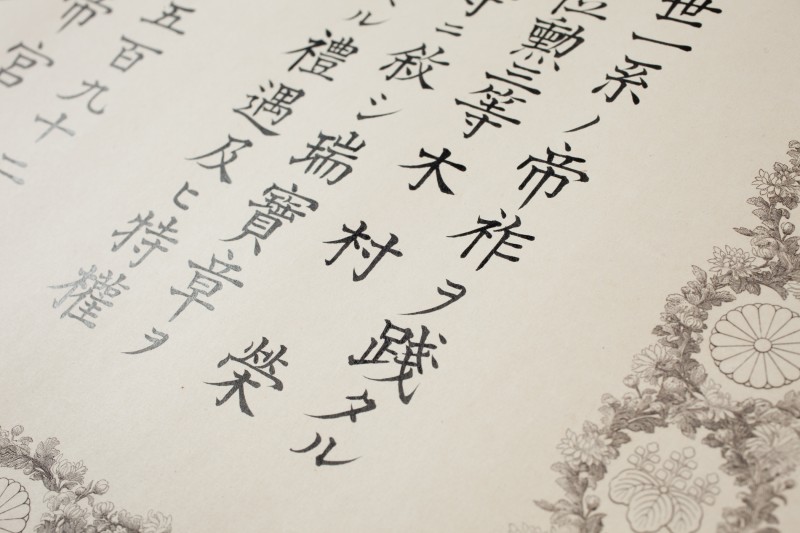 世一系ノ帝祚ヲ践タル
位勲三等木村榮
ニ敘シ瑞寶章ヲ
ル禮遇及ヒ特權
五百九十二
帝宮